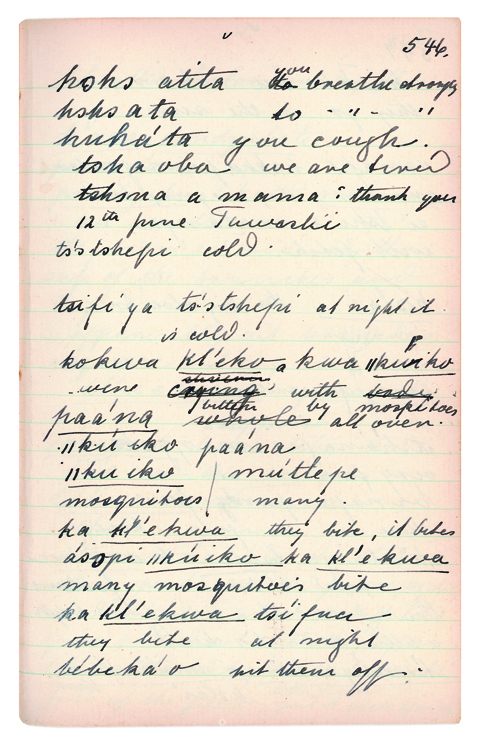 546.
hohs atita you to breathe strongly
hshs a ta to - " - "
huháta you cough.
tsha oba we are tired
tshsna a mama : thank you
12th June Tawashi
ts'stshepi cold.
tsifi ya ts'stshepi at night it
is cold.
kokwa kl'eko a kwa ||kúiko
were crying with
bitten by mosquitoes
paána whole all over.
||kúiko paána
||kuiko | mútlepe
mosquitoes | many.
ka kl'ekwa they bite, it bites
ásopi ||kúiko ka kl'e kwa
many mosquitoes bite
ka kl'ekwa tsi
they bite at night
bébekáo hit them off.